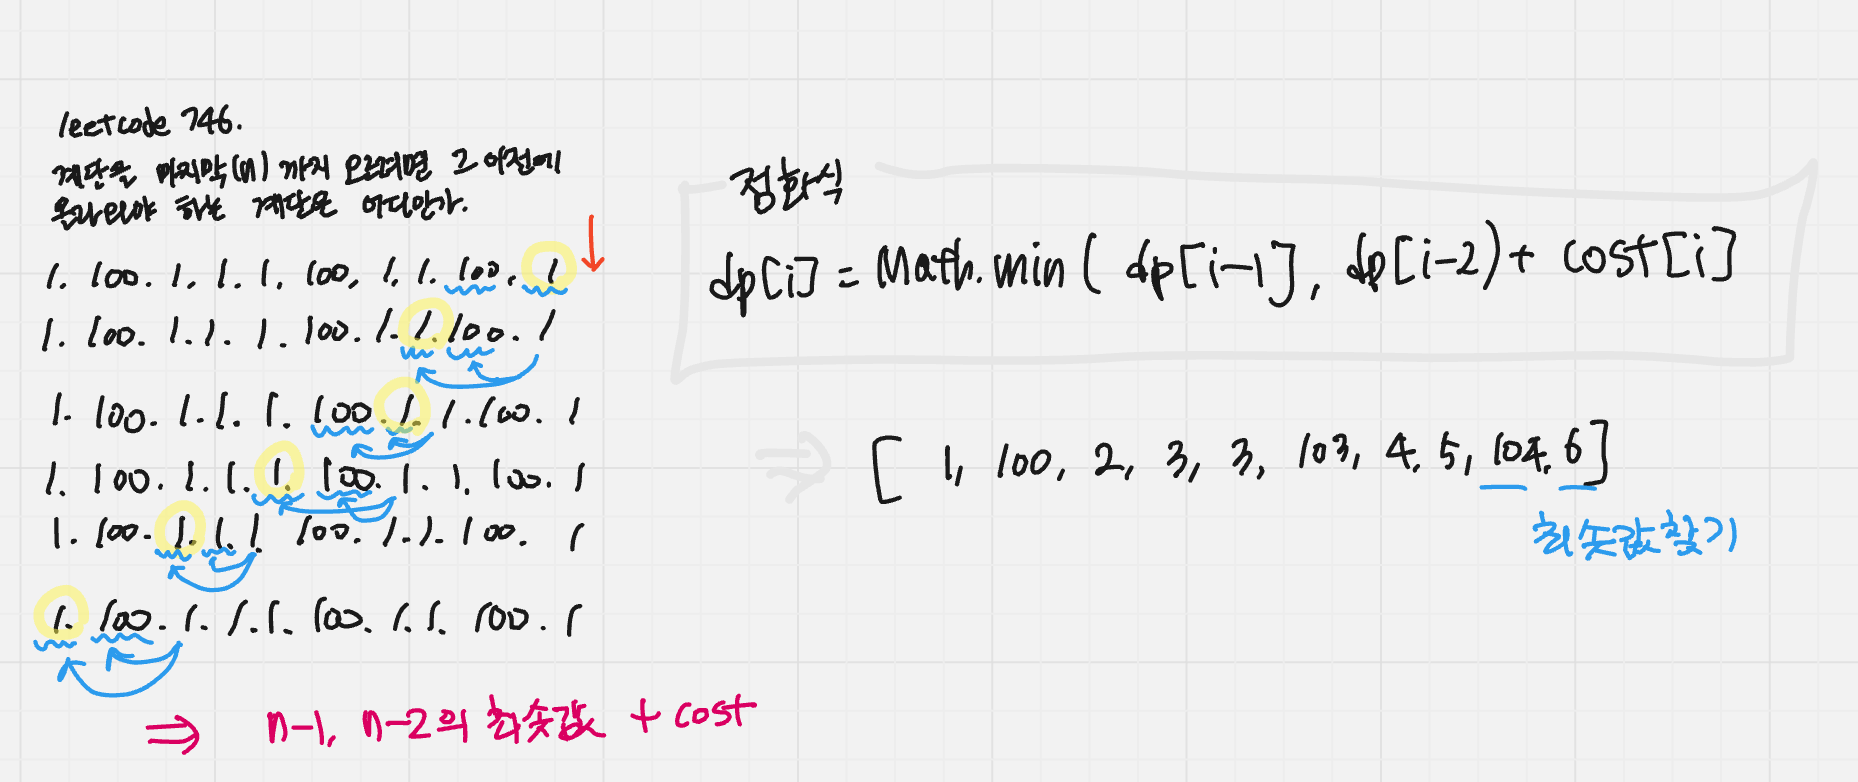 leetcode 746.
계단을 마지막(n) 까지 오르려면 그 이전에
올라와야 하는 계단은 어디인가.
1. 100. 1. 1. 1. 100, 1. 1. 100. 1
1. 100. 1. 1. 1. 100. 1. 1. 100. 1
1. 100. 1. 1. 1. 100. 1. 1. 100. 1
1. 100. 1. 1. 1. 100. 1. 1. 100. 1
1. 100. 1. 1. 1. 100. 1. 1. 100. 1
1. 100. 1. 1. 1. 100. 1. 1. 100. 1
⇒ n-1, n-2의 최솟값 + cost
점화식
dp[i] = Math.min( dp[i-1], dp[i-2) + cost[i]
⇒ [ 1, 100, 2, 3, 3, 103, 4, 5, 104, 6]
최솟값 찾기